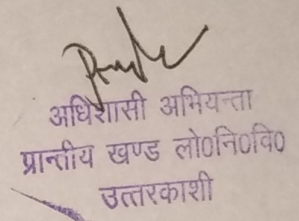 अधिशासी अभियन्ता
प्रान्तीय खण्ड लो0नि0वि0
उत्तरकाशी